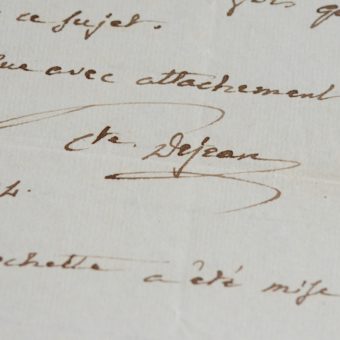 ce sujet.
avec attachement
Cte. Dejean
4.
a été mise